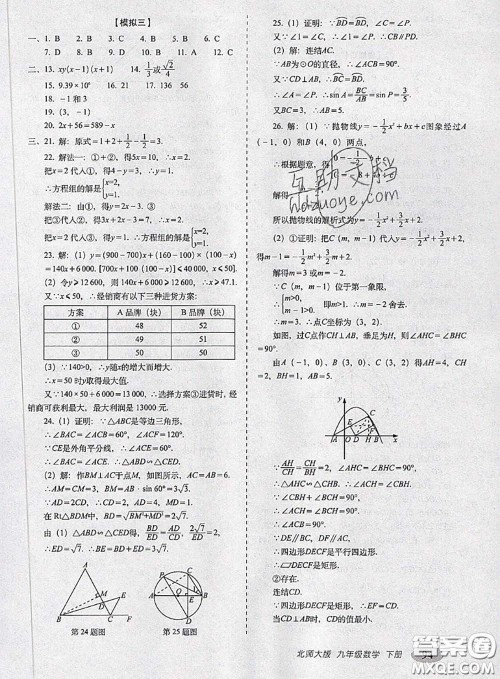 【模拟三】
一、1. B 2. D 3. B 4. B 5. D 6. B
7. B 8. D 9. C 10. D 11. B 12. C
二、13. xy(x-1)(x+1) 14. 1/3或√2/4
15. 9.39×10⁶ 16. 21 17. 136 56
18. -1和3
19. (3, -1)
20. 2x+56=589-x
三、21. 解: 原式=1+2+1/2-1/2=3.
22. 解法一: ①+②, 得5x=10, ∴x=2.
把x=2代入①, 得y=1.
∴方程组的解是{x=2, y=1.
解法二: 由①, 得y=3-x. ③
把③代入②, 得x=2.
把x=2代入③, 得y=1. ∴方程组的解是{x=2, y=1.
23. 解: (1) y=(900-700)x+(160-100)×(100-x)
=140x+6 000. [700x+100(100-x)]≤40 000, x≤50].
(2) 令y≥12 600, 则140x+6 000≥12 600, ∴x≥47.1.
又∵x≤50, ∴经销商有以下三种进货方案:
方案 A品牌(块) B品牌(块)
① 48 52
② 49 51
③ 50 50
(3) ∵140>0, ∴y随x的增大而增大.
∴x=50时y取得最大值.
又∵140×50+6 000=13 000, ∴选择方案③进货时, 经
销商可获利最大, 最大利润是13000元.
24. (1) 证明: ∵△ABC是等边三角形,
∴∠BAC=∠ACB=60°, ∠ACF=120°.
∵CE是外角平分线, ∴∠ACE=60°.
∴∠BAC=∠ACE.
又∵∠ADB=∠CDE, ∴△ABD∽△CED.
(2) 解: 作BM⊥AC于点M, 如图所示, AC=AB=6.
∴AM=CM=3, BM=AB·sin 60°=3√3.
∵AD=2CD, ∴CD=2, AD=4, MD=1.
在Rt△BDM中, BD=√(BM²+MD²)=2√7.
由(1)△ABD∽△CED得, BD/ED=AD/CD, 2√7/ED=2,
∴ED=√7, ∴BE=BD+ED=3√7.
第24题图 第25题图
25. (1) 证明: ∵BD=BD,
又∵∠BAC=∠BPD,
(2) 解: 连结AC.
∵AB为⊙O的直径, ∴∠ACB=90°.
又∵CD⊥AB, ∴BC=BD.
又∵BC=3, ∴AB=5.
26. 解: (1) ∵抛物线y=-1/2x²+bx+c图象经过A
(-1, 0) 和B (4, 0) 两点,
∴根据题意, 得
所以抛物线的解析式为y=-1/2x²+3/2x+2.
(2) ①证明: 把C (m, m-1) 代入y=-1/2x²+3/2x+2,
得m-1=-1/2m²+3/2m+2.
解得m=3或m=-2.
∵C (m, m-1) 位于第一象限,
∴{m>0, m-1>0, 即m>1. ∴m=-2舍去.
∴m=3. ∴点C坐标为(3, 2).
如图, 过C点作CH⊥AB, 垂足为H, 则∠AHC=∠BHC
=90°.
由A (-1, 0)、B (3, 0)、C (3, 2), 得AH=4, CH=2,
BH=1, AB=5.
∵AH/CH=CH/BH=2, ∠AHC=∠BHC=90°,
∴△AHC∽△CHB.
∴∠ACH=∠CBH.
∵∠CBH+∠BCH=90°,
∴∠ACH+∠BCH=90°.
∴∠ACB=90°.
∵DE∥BC, DF∥AC,
∴四边形DECF是平行四边形.
∴四边形DECF是矩形.
②存在.
连结CD.
∵四边形DECF是矩形, ∴EF=CD.
当CD⊥AB时, CD的值最小.
北师大版 九年级数学 下册 94